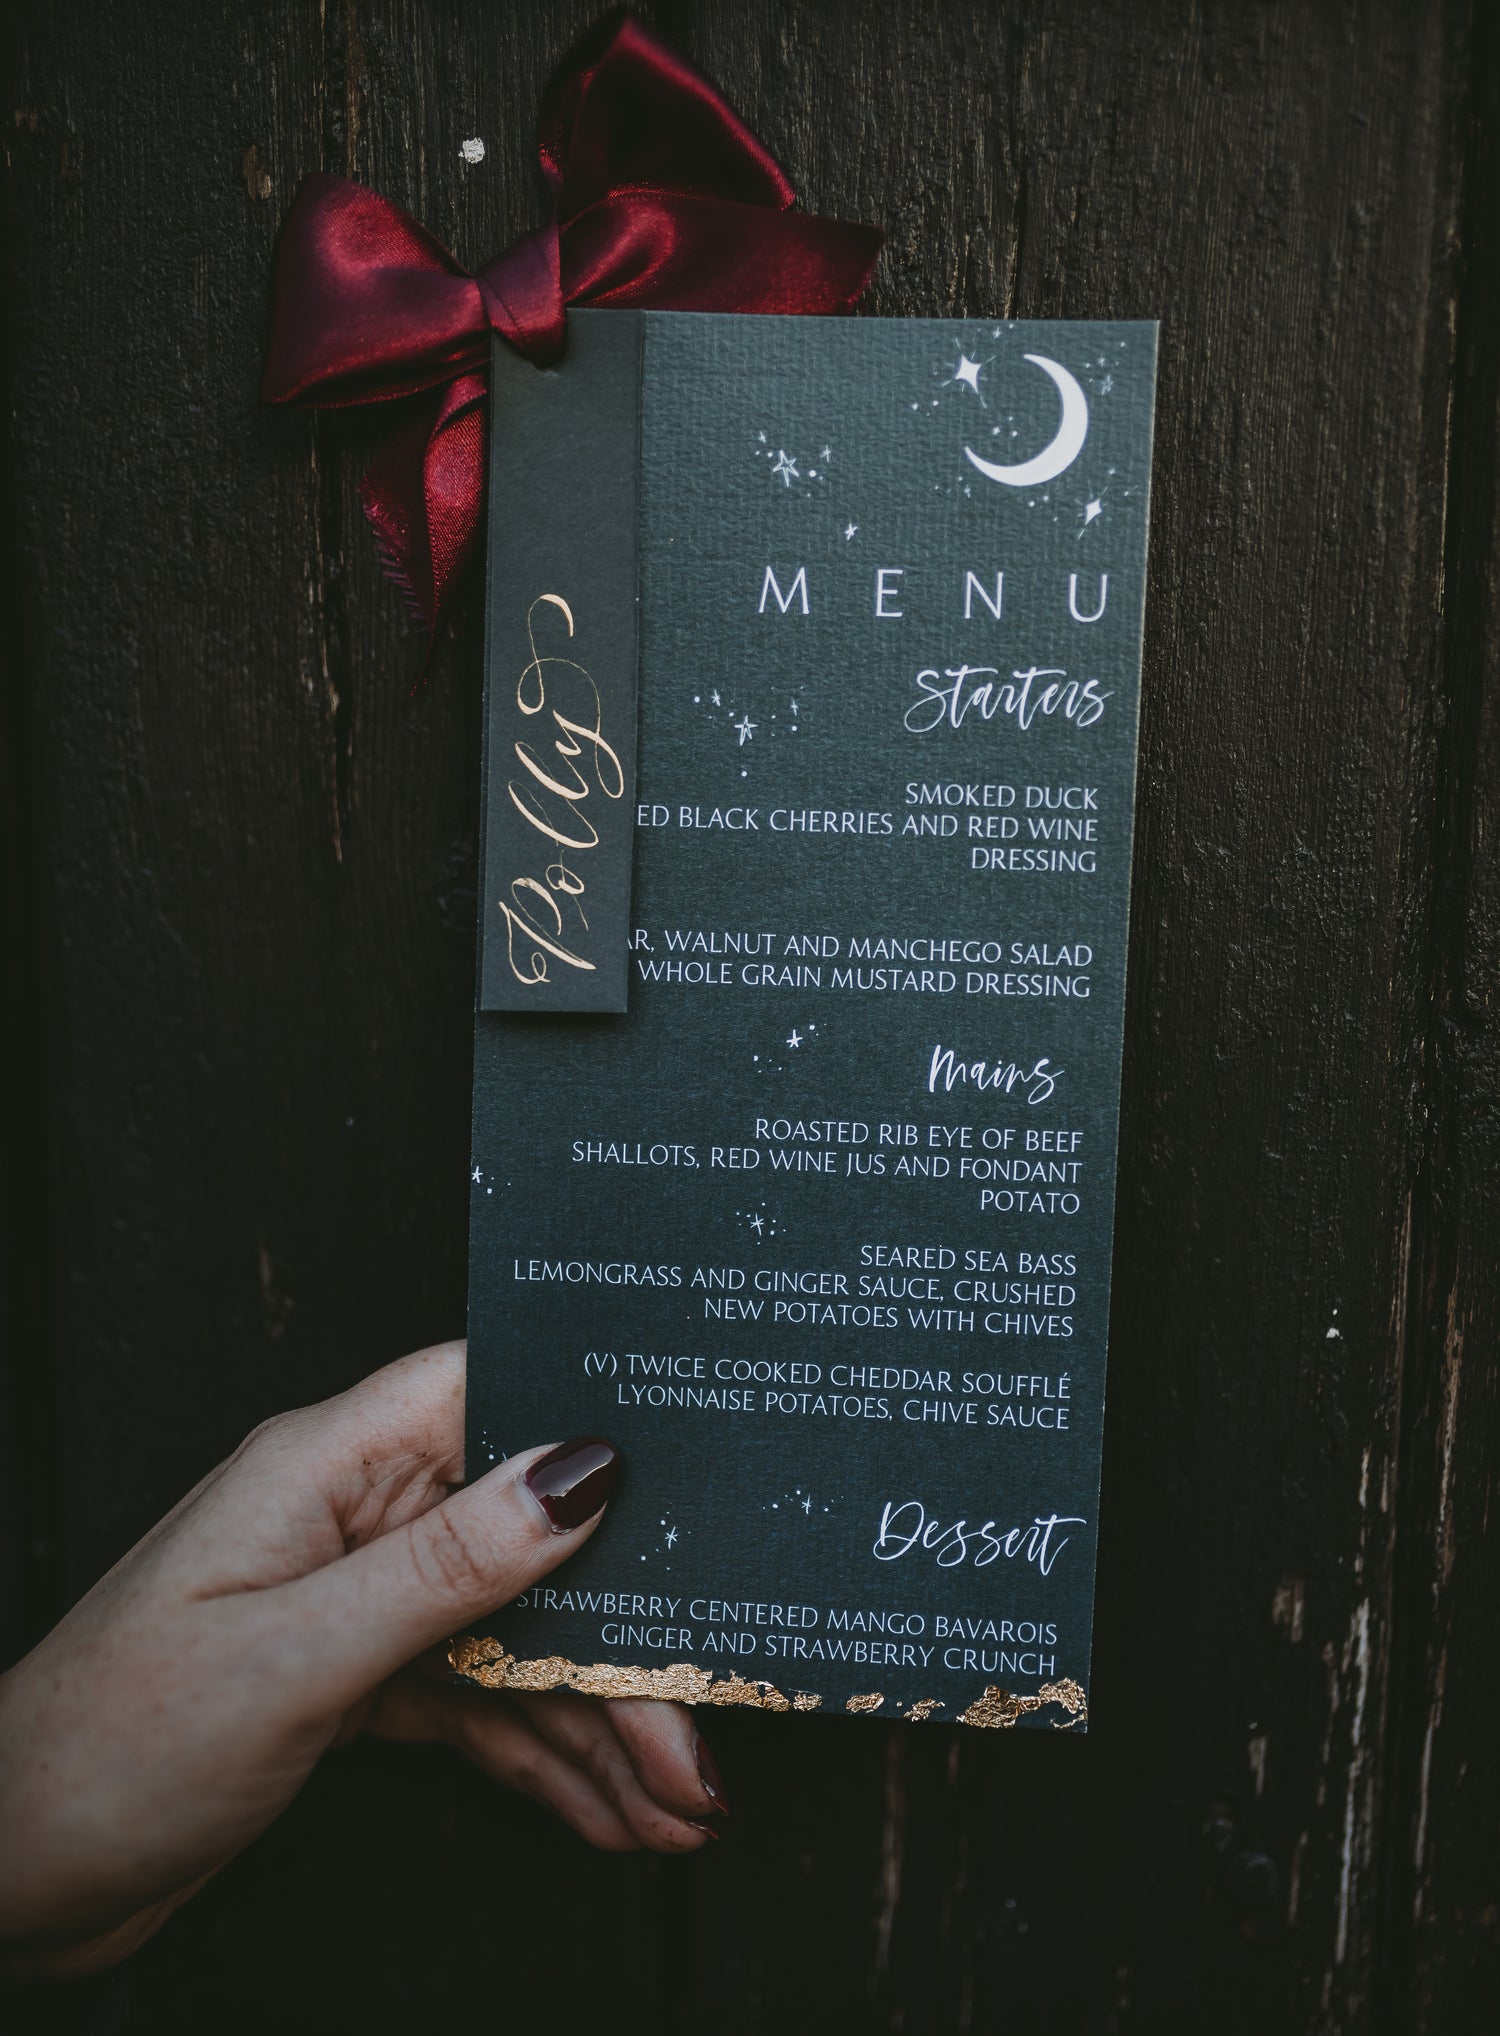 Polly
MENU
Starters
SMOKED DUCK
BLACK CHERRIES AND RED WINE
DRESSING
WALNUT AND MANCHEGO SALAD
WHOLE GRAIN MUSTARD DRESSING
Mains
ROASTED RIB EYE OF BEEF
SHALLOTS, RED WINE JUS AND FONDANT
POTATO
SEARED SEA BASS
LEMONGRASS AND GINGER SAUCE, CRUSHED
NEW POTATOES WITH CHIVES
(V) TWICE COOKED CHEDDAR SOUFFLÉ
LYONNAISE POTATOES, CHIVE SAUCE
Dessert
STRAWBERRY CENTERED MANGO BAVAROIS
GINGER AND STRAWBERRY CRUNCH